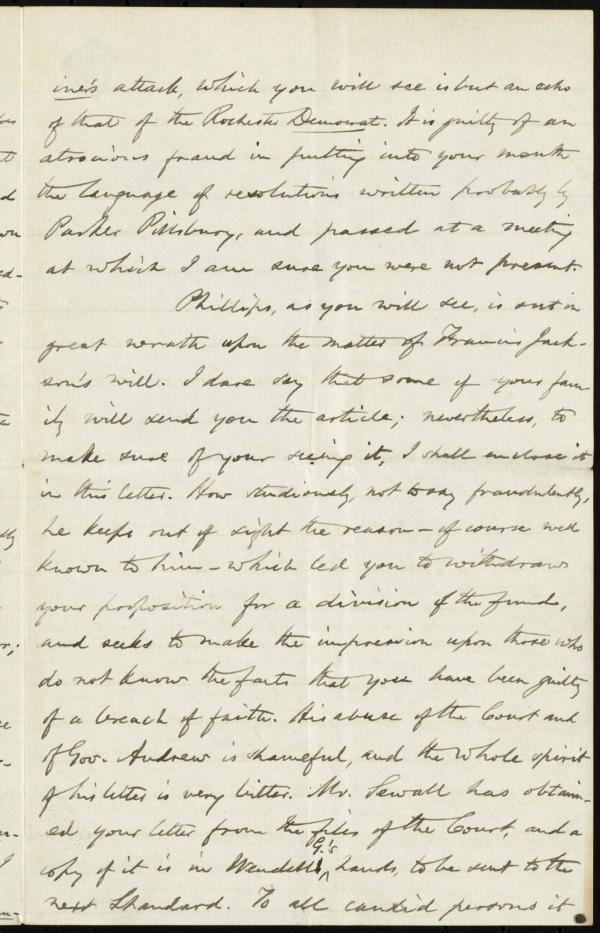 iner's attack, which you will see is but an echo
of that of the Rochester Democrat. It is guilty of an
atrocious fraud in putting into your mouth
the language of resolutions written probably by
Parker Pillsbury, and passed at a meeting
at which I am sure you were not present.
Phillips, as you will see, is out in
great wrath upon the matter of Francis Jack-
son's will. I dare say that some of your fam
ily will send you the article; nevertheless, to
make sure of your seeing it, I shall enclose it
in this letter. How studiously, not to say fraudulently,
he keeps out of sight the reason — of course well
known to him — which led you to withdraw
your proposition for a division of the fund,
and seeks to make the impression upon those who
do not know the facts that you have been guilty
of a breach of faith. His abuse of the Court and
of Gov. Andrew is shameful, and the whole spirit
of his letter is very bitter. Mr. Sewall has obtain-
ed your letter from the files of the Court, and a
copy of it is in Wendell G.'s hands, to be sent to the
next Standard. To all candid persons it